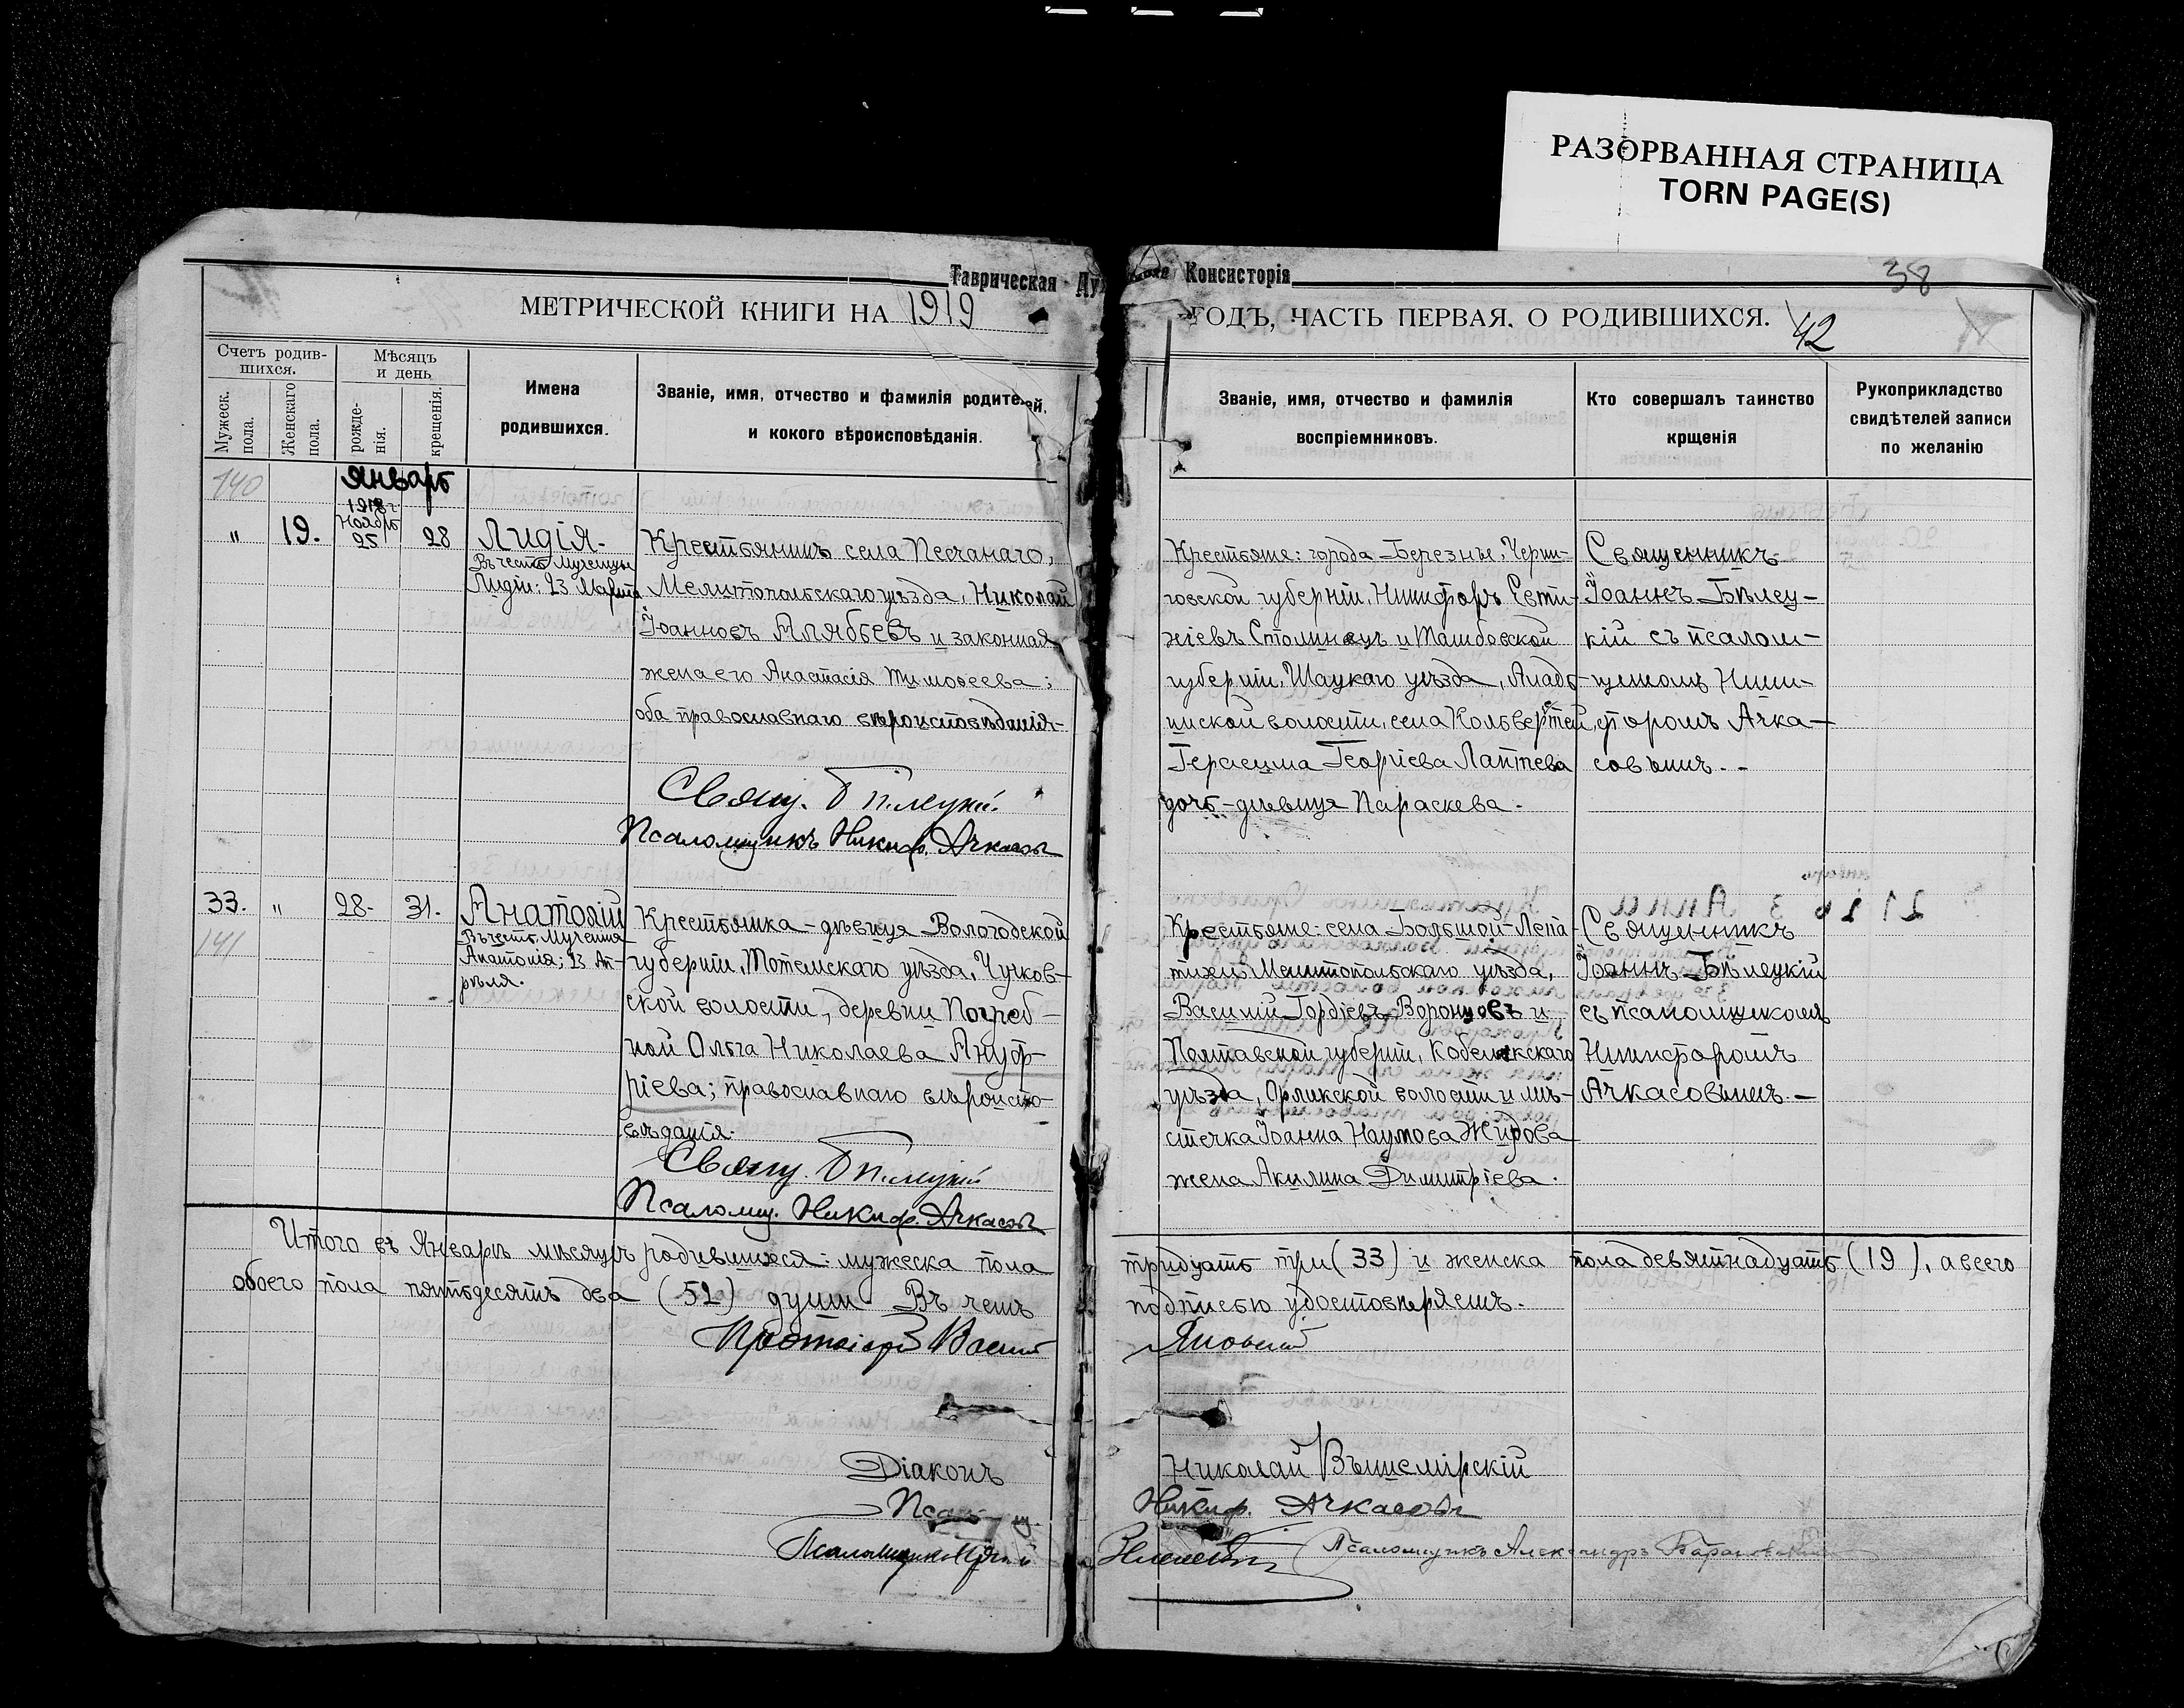 РАЗОРВАННАЯ СТРАНИЦА
TORN PAGE(S)
Таврическая Ду
Консисторія
38
МЕТРИЧЕСКОЙ КНИГИ НА 1919
ГОДЪ, ЧАСТЬ ПЕРВАЯ, О РОДИВШИХСЯ.
42
Счетъ родив-
шихся.
Мужеск.
пола.
Женскаго
пола.
Мѣсяцъ
и день
рожде-
нія.
крещенія.
Имена
родившихся.
Званіе, имя, отчество и фамилія родителей,
и кокого вѣроисповѣданія.
Званіе, имя, отчество и фамилія
воспріемниковъ.
Кто совершалъ таинство
крщенія
Рукоприкладство
свидѣтелей записи
по желанію
140
Январь
1918 г.
Ноябрь
" 19. 25 28
Лидія.
Въ честь Мученицы
Лидіи: 23 Марта
Крестьянинъ села Песчанаго,
Мелитопольскаго уѣзда, Николай
Іоанновъ Алябьевъ и законная
жена его Анастасія Тимоѳеева;
оба православнаго вѣроисповѣданія.
Свящ. Бѣлецкій.
Псаломщикъ Никиф. Ачкасовъ
Крестьяне: города Березны, Черни-
говской губерніи, Никифоръ Евти-
хіевъ Столинецъ и Тамбовской
губерніи, Шацкаго уѣзда,
волости, села
Герасима Георгіева Лаптева
дочь-дѣвица Параскева.
Священникъ
Іоаннъ Бѣлец-
кій съ псалом-
щикомъ Ники-
форомъ Ачка-
совымъ.-
33. " 28- 31.
141
Анатолій
Въ честь Мученика
Анатолія; 23 Ап-
рѣля.
Крестьянка-дѣвица Вологодской
губерніи, Тотемскаго уѣзда, Чучков-
ской волости, деревни Погреб-
ной Ольга Николаева Ануф-
ріева; православнаго вѣроиспо-
вѣданія.
Свящ. Бѣлецкій
Псаломщ. Никиф. Ачкасовъ
Крестьяне: села Большой-Лепа-
тихи Мелитопольскаго уѣзда,
Василій Гордіевъ Воронцовъ и
Полтавской губерніи, Кобелякскаго
уѣзда, Орликской волости и мѣ-
стечка Іоанна Наумова Жирова
жена Акилина Димитріева.
Священникъ
Іоаннъ Бѣлецкій
съ псаломщикомъ
Никифоромъ
Ачкасовымъ.-
Итого въ Январѣ мѣсяцѣ родившихся: мужеска пола тридцать три (33) и женска пола девятнадцать (19), а всего
обоего пола пятьдесятъ два (52) души Въ чемъ подписью удостовѣряемъ.
Протоіерей
Діаконъ Николай Вышемірскій
Никиф. Ачкасовъ
Псаломщикъ Александръ